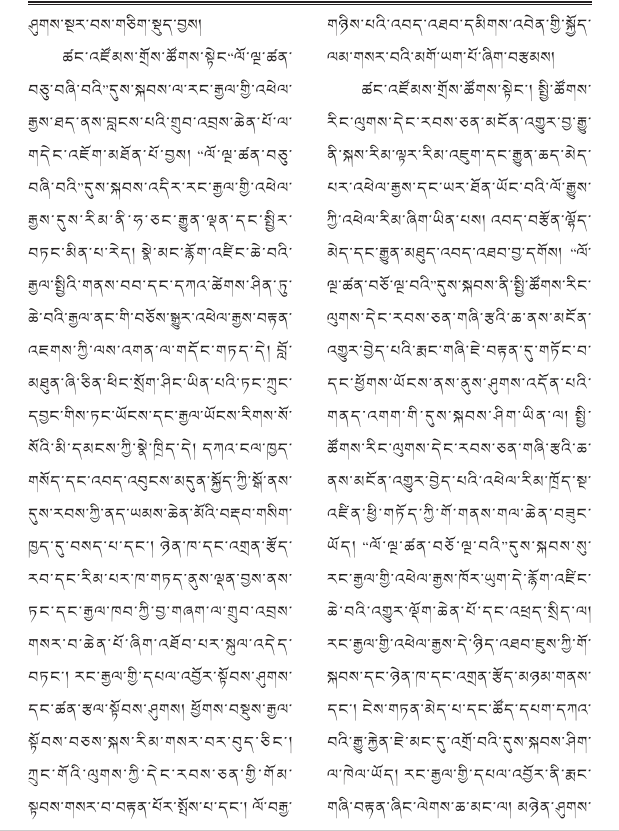 ཤུགས་སྔར་བས་གཅིག་སྡུད་བྱས།
ཚང་འཛོམས་གྲོས་ཚོགས་སྟེང“ལོ་ལྔ་ཚན་
བཅུ་བཞི་བའི”དུས་སྐབས་ལ་རང་རྒྱལ་གྱི་འཕེལ་
རྒྱས་ཐད་ནས་བླངས་པའི་གྲུབ་འབྲས་ཆེན་པོ་ལ་
གདེང་འཇོག་མཐོན་པོ་བྱས། “ལོ་ལྔ་ཚན་བཅུ་
བཞི་བའི”དུས་སྐབས་འདིར་རང་རྒྱལ་གྱི་འཕེལ་
རྒྱས་དུས་རིམ་ནི་ཧ་ཅང་རྒྱུན་ལྡན་དང་སྤྱིར་
བཏང་མིན་པ་རེད། སྣེ་མང་རྙོག་འཛིང་ཆེ་བའི་
རྒྱལ་སྤྱིའི་གནས་བབ་དང་དཀའ་ཚེགས་ཤིན་ཏུ་
ཆེ་བའི་རྒྱལ་ནང་གི་བཅོས་སྒྱུར་འཕེལ་རྒྱས་བརྟན་
འཇགས་ཀྱི་ལས་འགན་ལ་གདོང་གཏད་དེ། བློ་
མཐུན་ཞི་ཅིན་ཕིང་སྲོག་ཤིང་ཡིན་པའི་ཏང་ཀྲུང་
དབྱང་གིས་ཏང་ཡོངས་དང་རྒྱལ་ཡོངས་རིགས་སོ་
སོའི་མི་དམངས་ཀྱི་སྣེ་ཁྲིད་དེ། དཀའ་ངལ་ཁྱད་
གསོད་དང་འབད་འབུངས་མདུན་སྐྱོད་ཀྱི་སྒོ་ནས་
དུས་རབས་ཀྱི་ནད་ཡམས་ཆེན་མོའི་བརྡབ་གསིག་
ཁྱད་དུ་བསད་པ་དང་། ཉེན་ཁ་དང་འགྲན་རྩོད་
རབ་དང་རིམ་པར་ཁ་གཏད་ནུས་ལྡན་བྱས་ནས་
ཏང་དང་རྒྱལ་ཁབ་ཀྱི་བྱ་གཞག་ལ་གྲུབ་འབྲས་
གསར་བ་ཆེན་པོ་ཞིག་འཐོབ་པར་སྐུལ་འདེད་
བཏང་། རང་རྒྱལ་གྱི་དཔལ་འབྱོར་སྟོབས་ཤུགས་
དང་ཚན་རྩལ་སྟོབས་ཤུགས། ཕྱོགས་བསྡུས་རྒྱལ་
སྟོབས་བཅས་སྐས་རིམ་གསར་བར་བུད་ཅིང་།
ཀྲུང་གོའི་ལུགས་ཀྱི་དེང་རབས་ཅན་གྱི་གོམ་
སྟབས་གསར་བ་བརྟན་པོར་སྤོས་པ་དང་། ལོ་བརྒྱ་
གཉིས་པའི་འབད་འཐབ་དམིགས་འབེན་གྱི་སྐྱོད་
ལམ་གསར་བའི་མགོ་ཡག་པོ་ཞིག་བརྩམས།
ཚང་འཛོམས་གྲོས་ཚོགས་སྟེང་། སྤྱི་ཚོགས་
རིང་ལུགས་དེང་རབས་ཅན་མངོན་འགྱུར་བྱ་རྒྱུ་
ནི་སྐས་རིམ་ལྟར་རིམ་འཇུག་དང་རྒྱུན་ཆད་མེད་
པར་འཕེལ་རྒྱས་དང་ཡར་ཐོན་ཡོང་བའི་ལོ་རྒྱུས་
ཀྱི་འཕེལ་རིམ་ཞིག་ཡིན་པས། འབད་བརྩོན་ལྷོད་
མེད་དང་རྒྱུན་མཐུད་འབད་འཐབ་བྱ་དགོས། “ལོ་
ལྔ་ཚན་བཅོ་ལྔ་བའི”དུས་སྐབས་ནི་སྤྱི་ཚོགས་རིང་
ལུགས་དེང་རབས་ཅན་གཞི་རྩའི་ཆ་ནས་མངོན་
འགྱུར་བྱེད་པའི་རྨང་གཞི་ཇེ་བརྟན་དུ་གཏོང་བ་
དང་ཕྱོགས་ཡོངས་ནས་ནུས་ཤུགས་འདོན་པའི་
གནད་འགག་གི་དུས་སྐབས་ཤིག་ཡིན་ལ། སྤྱི་
ཚོགས་རིང་ལུགས་དེང་རབས་ཅན་གཞི་རྩའི་ཆ་
ནས་མངོན་འགྱུར་བྱེད་པའི་འཕེལ་རིམ་ཁྲོད་སྔ་
འཛིན་ཕྱི་གཏོད་ཀྱི་གོ་གནས་གལ་ཆེན་བཟུང་
ཡོད། “ལོ་ལྔ་ཚན་བཅོ་ལྔ་བའི”དུས་སྐབས་སུ་
རང་རྒྱལ་གྱི་འཕེལ་རྒྱས་ཁོར་ཡུག་དེ་རྙོག་འཛིང་
ཆེ་བའི་འགྱུར་ལྡོག་ཆེན་པོ་དང་འཕྲད་སྲིད་ལ།
རང་རྒྱལ་གྱི་འཕེལ་རྒྱས་དེ་ཉིད་འཐབ་ཇུས་ཀྱི་གོ་
སྐབས་དང་ཉེན་ཁ་དང་འགྲན་རྩོད་མཉམ་གནས་
དང་། ངེས་གཏན་མེད་པ་དང་ཚོད་དཔག་དཀའ་
བའི་རྒྱུ་རྐྱེན་ཇེ་མང་དུ་འགྲོ་བའི་དུས་སྐབས་ཤིག་
ལ་ཁེལ་ཡོད། རང་རྒྱལ་གྱི་དཔལ་འབྱོར་ནི་རྨང་
གཞི་བརྟན་ཞིང་ལེགས་ཆ་མང་ལ། མཉེན་ཤུགས་